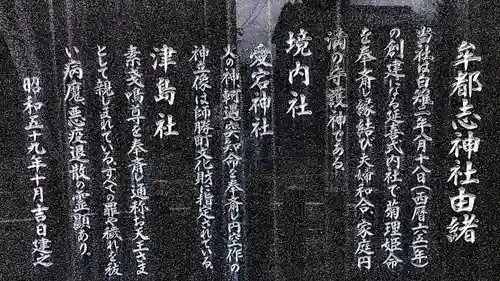 牟都志神社由緒
当社は白雉二年八月十八日(西暦六五一年)
の創建になる延喜式内社で菊理姫命
を奉斉し縁結び、夫婦和合、家庭円
満の守護神である。
境内社
愛宕神社
火の神軻遇突知命を奉斉し円空作の
神像は師勝町文化財に指定されている。
津島社
素戔嗚尊を奉斉し通称お天王さま
として親しまれている。すべての罪や穢れを祓
い病魔悪疫退散の霊顕あり、
昭和五十九年十月吉日建之